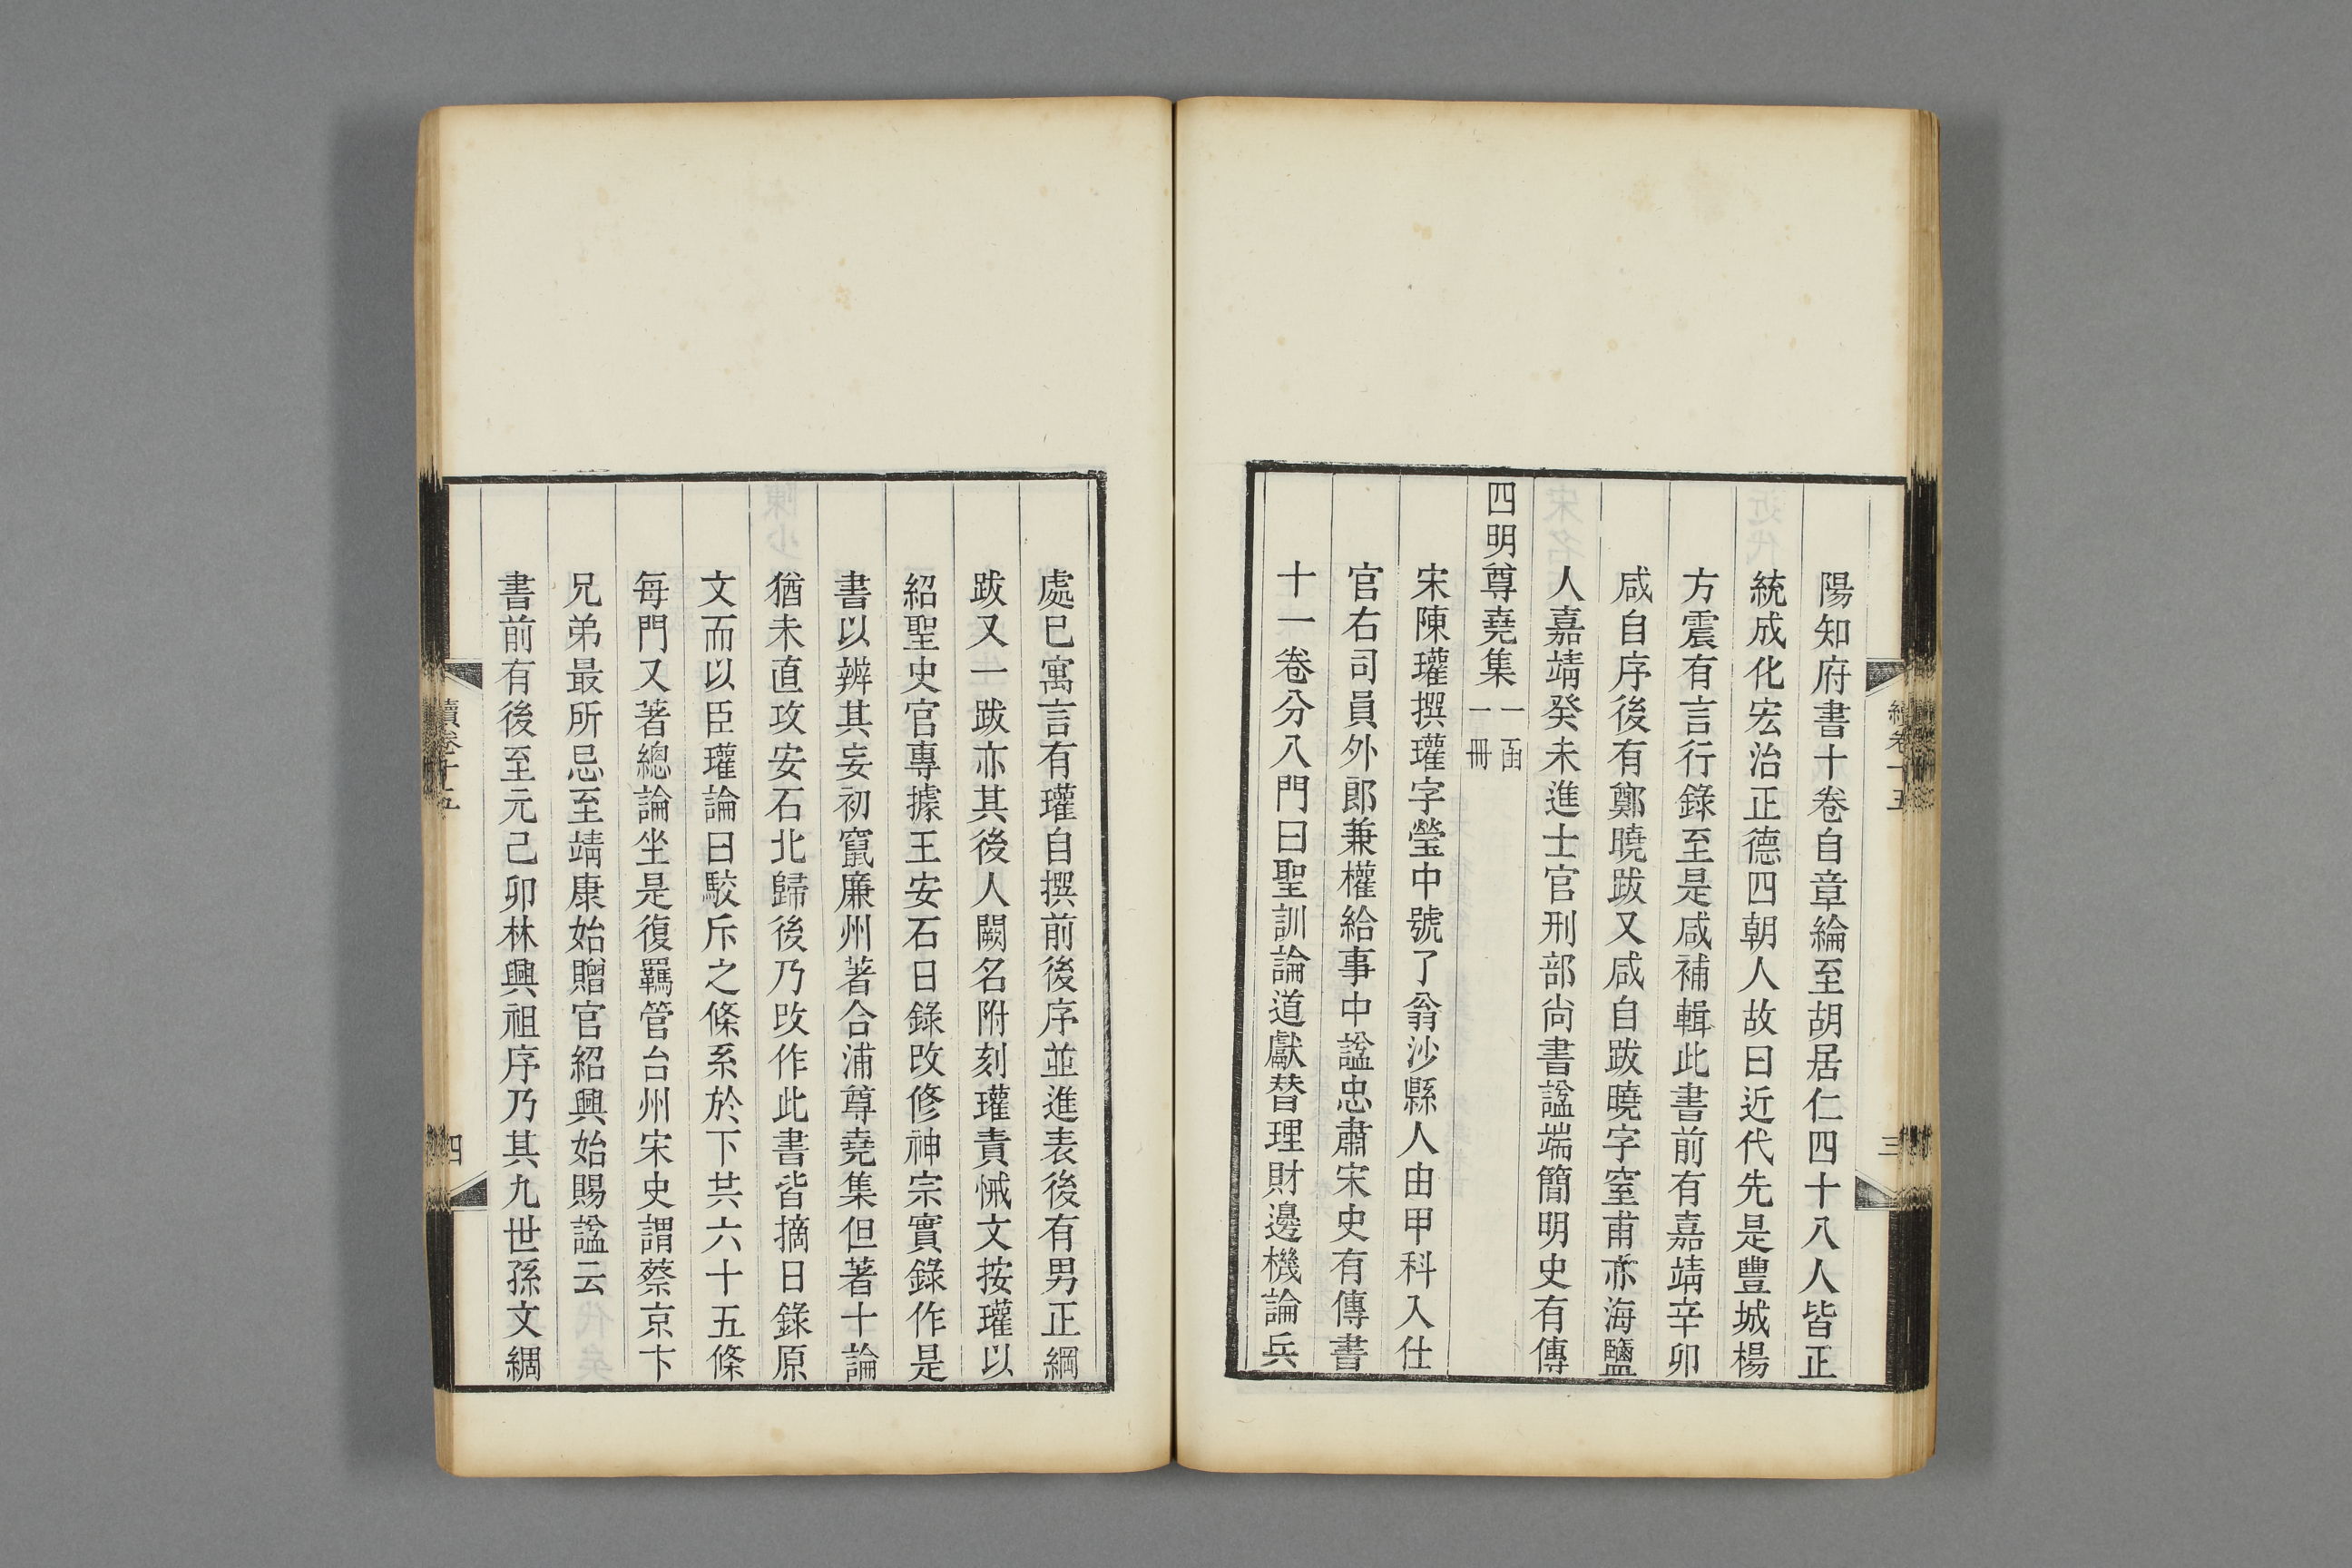 陽知府書十卷自章綸至胡居仁四十八人皆正
統成化宏治正德四朝人故曰近代先是豐城楊
方震有言行錄至是咸補輯此書前有嘉靖辛卯
咸自序後有鄭曉跋又咸自跋曉字窒甫亦海鹽
人嘉靖癸未進士官刑部尚書諡端簡明史有傳
四明尊堯集一函一冊
宋陳瓘撰瓘字瑩中號了翁沙縣人由甲科入仕
官右司員外郎兼權給事中諡忠肅宋史有傳書
十一卷分八門曰聖訓論道獻替理財邊機論兵
續卷十五
三
處已寓言有瓘自撰前後序並進表後有男正綱
跋又一跋亦其後人闕名附刻瓘責悈文按瓘以
紹聖史官專據王安石日錄改修神宗實錄作是
書以辨其妄初竄廉州著合浦尊堯集但著十論
猶未直攻安石北歸後乃改作此書皆摘日錄原
文而以臣瓘論曰駮斥之條系於下共六十五條
每門又著總論坐是復羈管台州宋史謂蔡京卞
兄弟最所忌至靖康始贈官紹興始賜諡云
書前有後至元己卯林興祖序乃其九世孫文綢
續卷十五
四